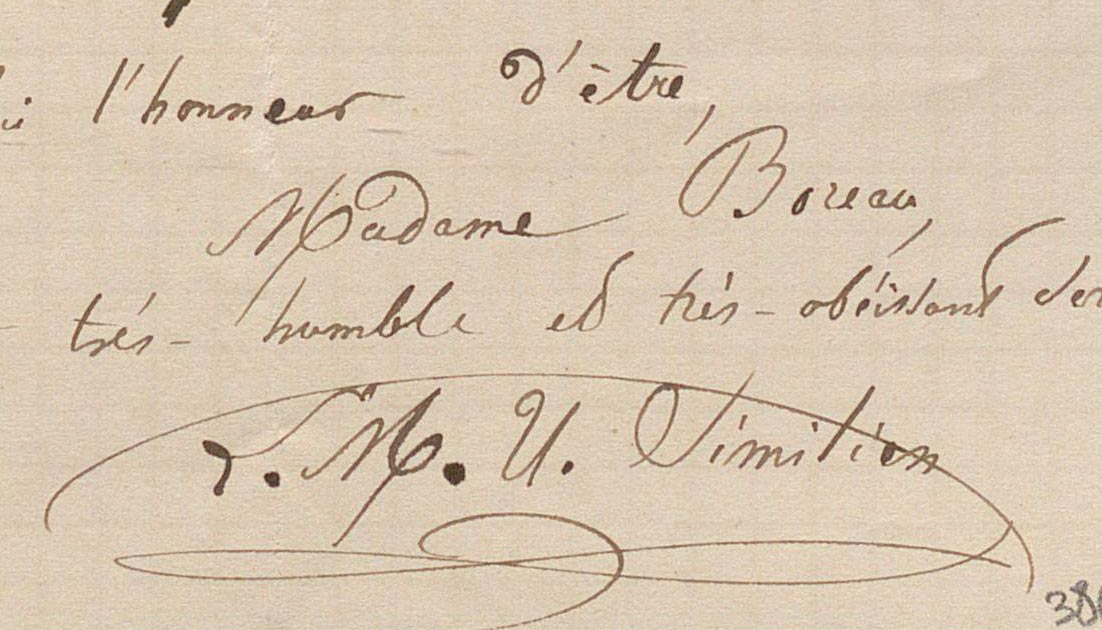 l'honneur d'être,
Madame Boreau,
trés-humble et trés-obéissant ser
L. M. U. Simitien